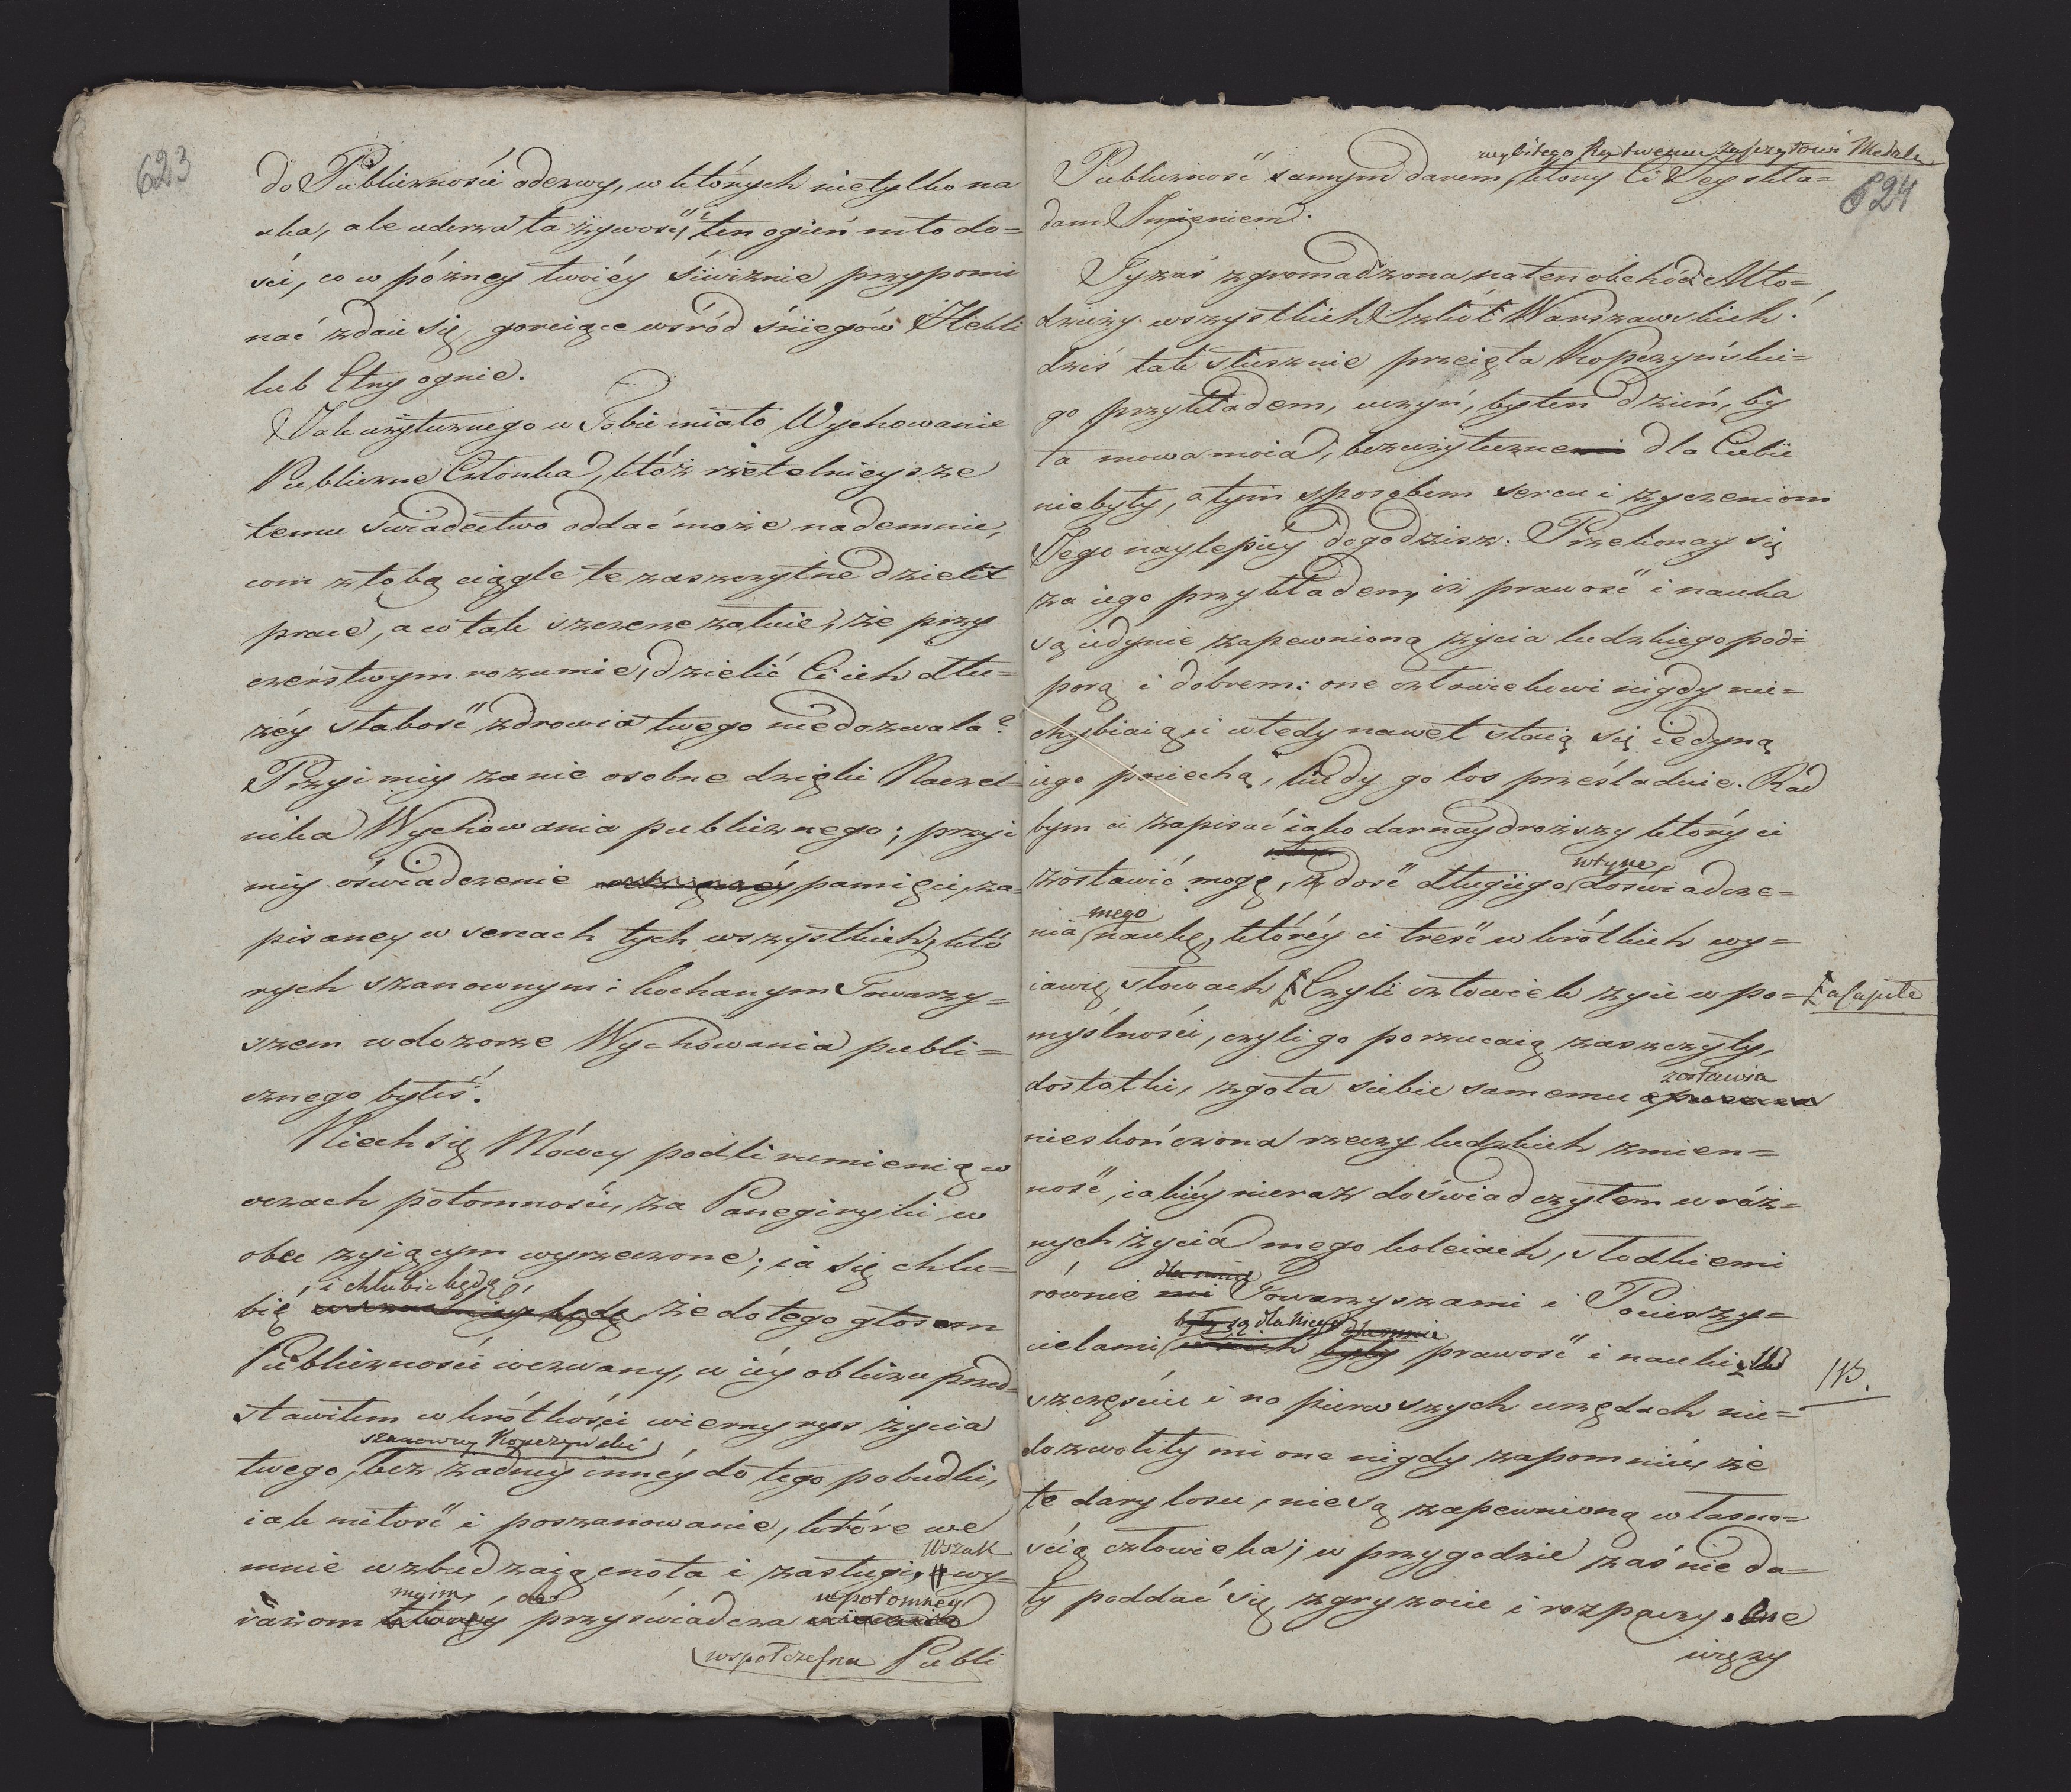 623
do Publiczności odezwy, w których nietylko na
uka, ale uderza ta żywość, i ten ogień młodo=
ści, co w późney twoiéy śiwiznie przypomi
nać zdaie się gorciące wśród śniegów Hekli
lub Etny ognie.
Jak użytecznego w Tobie miało Wychowanie
Publiczne Członka, któż rzetelnieysze
temu świadectwo oddać może nademnie,
com z tobą ciągle te zaszczytne dzielił
prace, a co tak szczerze żałuie, że przy
czerstwym rozumie, dzielić Ci ich dłu=
żéy słabość zdrowia twego niedozwala?
Przyimiy zanie osobne dzięki Naczel=
nika Wychowania publicznego; przyi
miy oświadczenie pamięci, za=
pisaney w sercach tych wszystkich, któ
rych szanownym i kochanym Towarzy=
szem w dozorze Wychowania publi=
cznego byłeś.
Niech się Mówcy podli rumienią w
oczach potomności, za Panegiryki w
obec żyiącym wyrzeczone; ia się chlu=
i chlubić będę
bię, że do tego głosem
Publiczności wezwany, w iéy obliczu przed=
stawiłem w krótkości wierny rys życia
szanowny Kopczyński
twego, bez żadnéy innéy do tego pobudki,
iak miłość i poszanowanie, które we
Wszak
mnie wzbudzaią cnota i zasługi. wy=
moim
u potomney
razom przyświadcza
współczesna Publi
wybitego Ku twemu zaszczytowi Medalu
624
Publiczność samym darem, który Ci Jey skła=
dam Imieniem.
Ty zaś zgromadzona na ten obchód Mło=
dzieży wszystkich Szkół Warszawskich!
dziś tak słusznie przeięta Kopczyńskie=
go przykładem, uczyń, by ten dzień, by
ta mowa moia, bezużyteczne dla Ciebie
niebyły, a tym sposobem sercu i życzeniom
Jego naylepiéy dogodzisz. Przekonay się
za iego przykładem, iż prawość i nauka
są iedynie zapewnioną życia ludzkiego pod=
porą i dobrem: one człowiekowi nigdy nie=
chybiaią, i wtedy nawet staią się iedyną
iego pociechą, kiedy go los prześladuie. Rad
bym ci zapisać iako dar naydroższy który ci
zostawić mogę, z dość długiego doświadcze=
mego
nia naukę, któréy ci treść w krótkich wy=
iawię słowach Czyli człowiek żyie w po=
a capite
myślności, czyli go porzucaią zaszczyty,
zostawia
dostatki, zgoła siebie samemu
nieskończona rzeczy ludzkich zmien=
ność, iakiéy nieraz doświadczyłem w róż=
nych życia mego koleiach, słodkiemi
dla mnie
równie Towarzyszami i Pocieszy=
były są dla Niego dla mnie
cielami prawość i nauki. W
szczęściu i na pierwszych urzędach nie=
dozwoliły mi one nigdy zapomnieć, że
te dary losu, nie są zapewnioną własno=
ścią człowieka; w przygodzie zaś nie da=
ły poddać się zgryzocie i rozpaczy. One
więzy